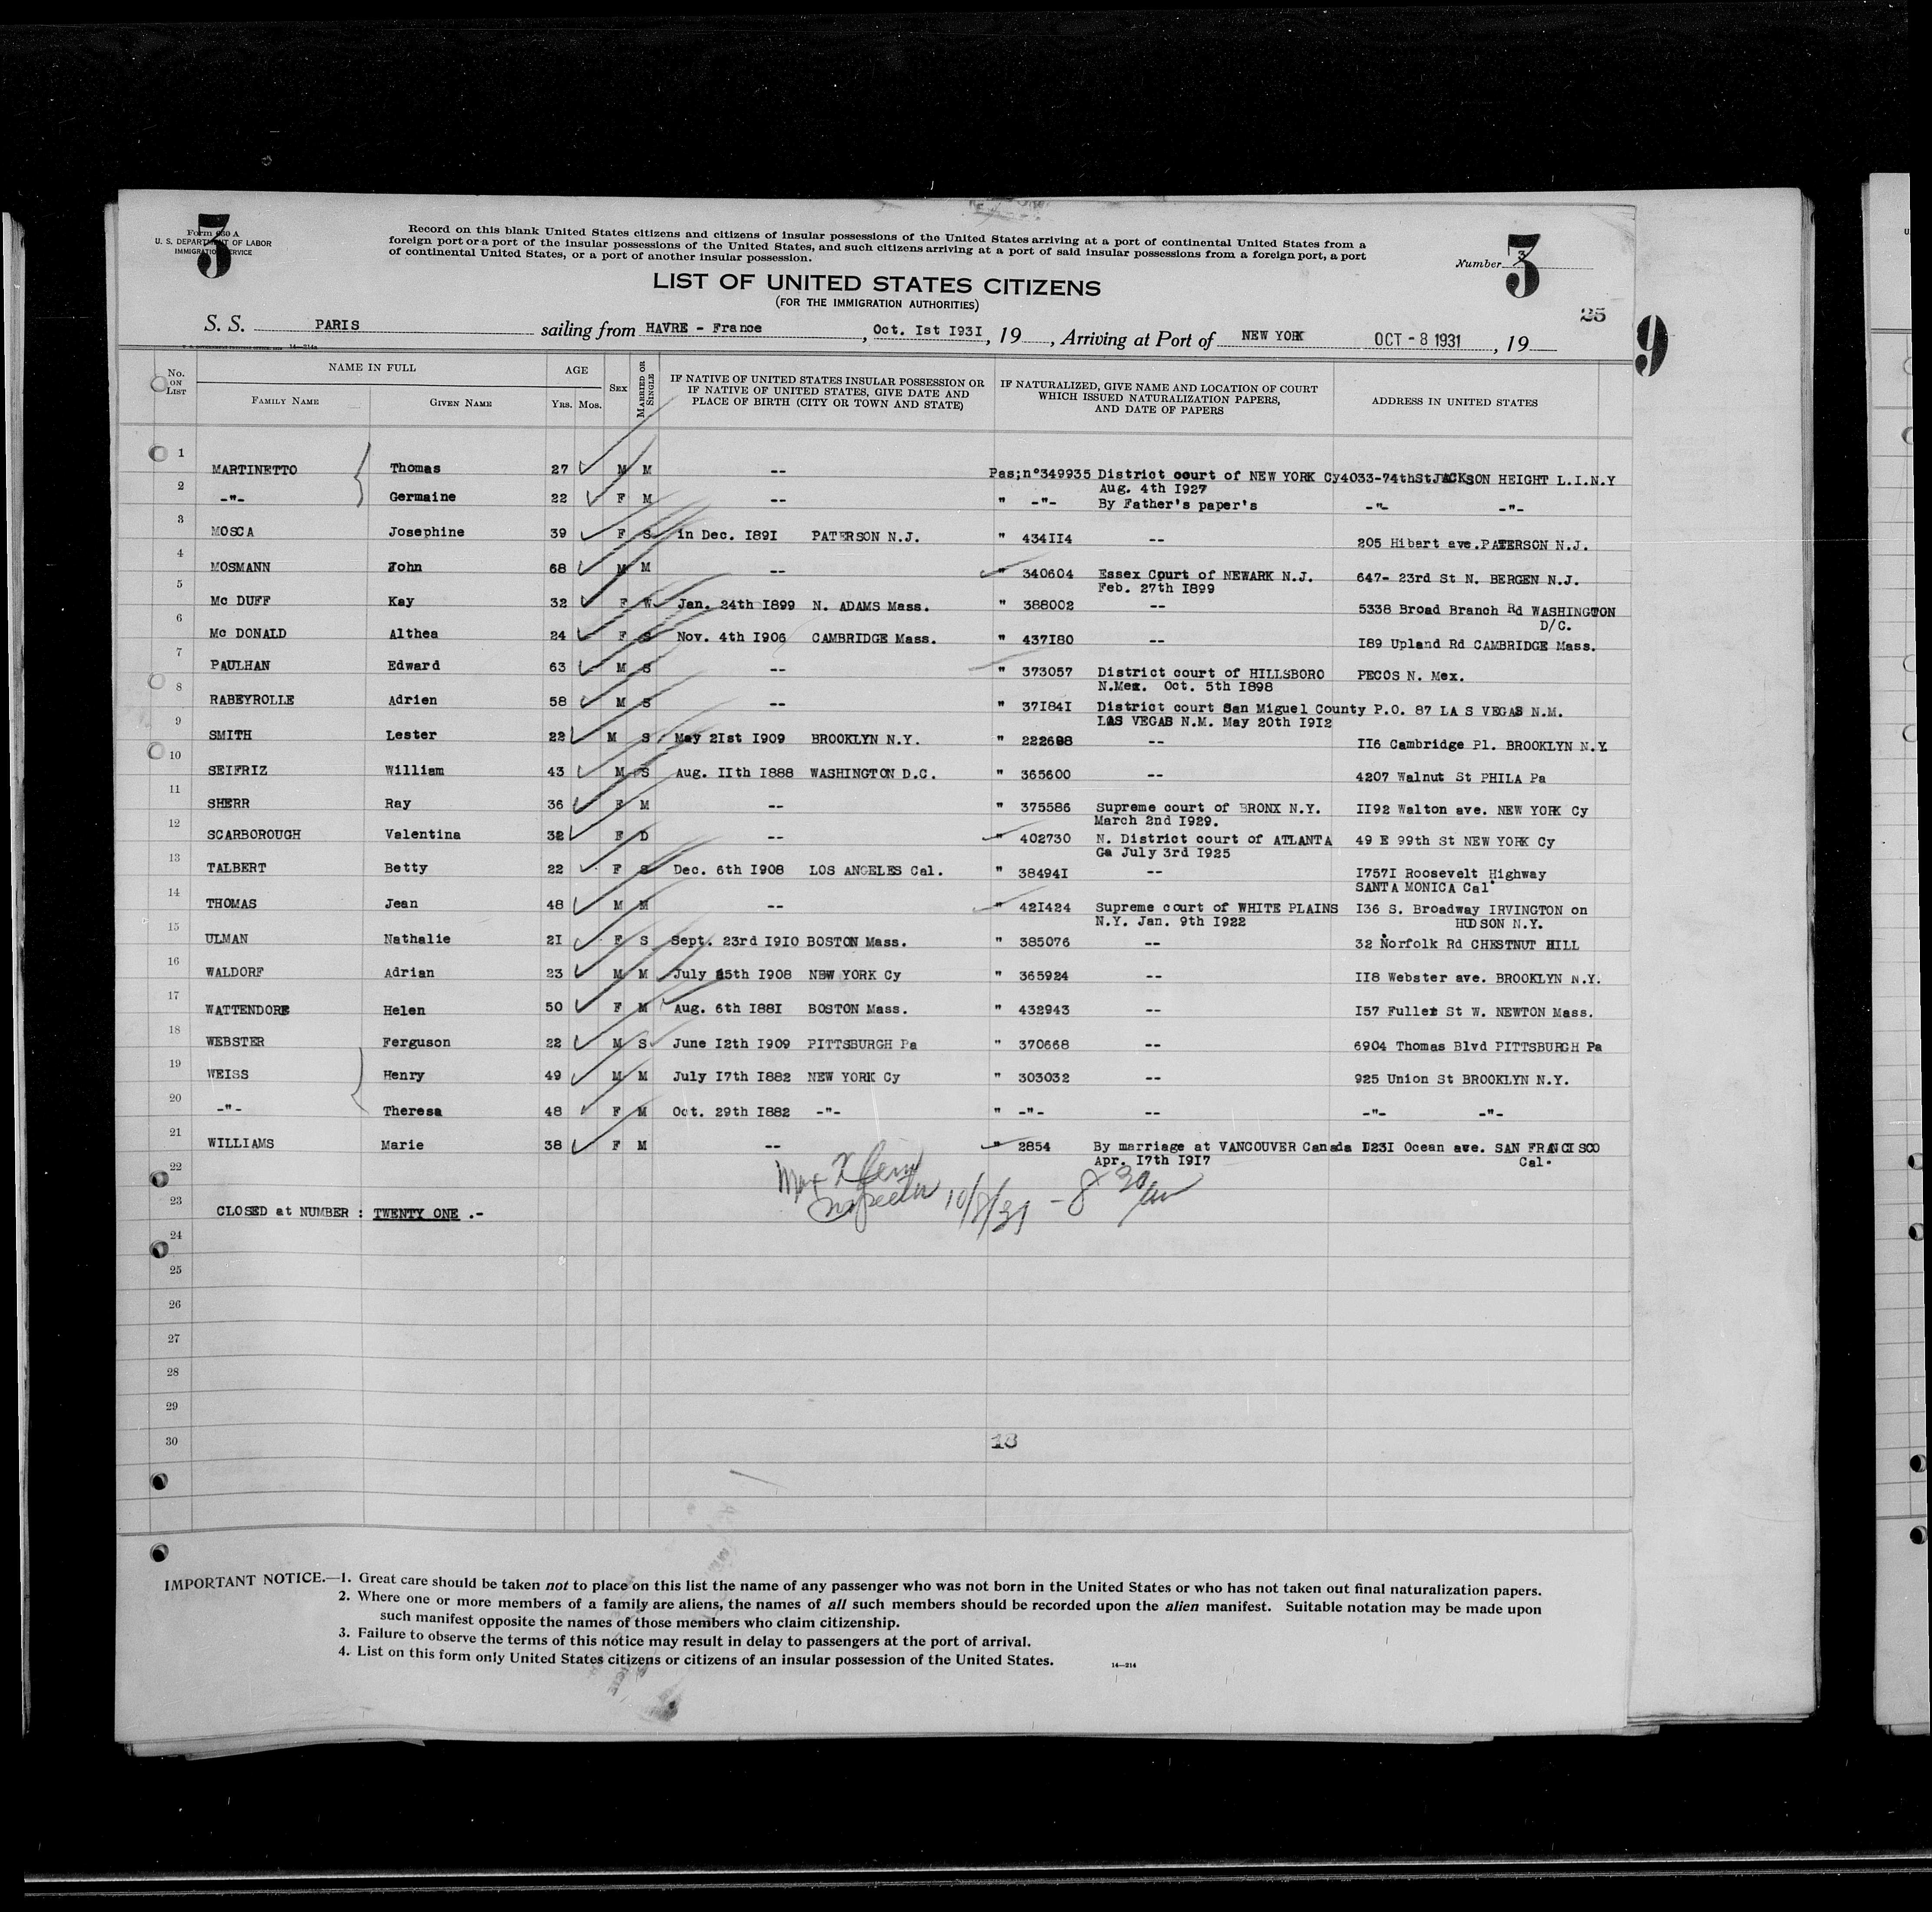 3
Form 630 A
U. S. DEPARTMENT OF LABOR
IMMIGRATION SERVICE
Record on this blank United States citizens and citizens of insular possessions of the United States arriving at a port of continental United States from a
foreign port or a port of the insular possessions of the United States, and such citizens arriving at a port of said insular possessions from a foreign port, a port
of continental United States, or a port of another insular possession.
Number 3
3
LIST OF UNITED STATES CITIZENS
(FOR THE IMMIGRATION AUTHORITIES)
25
9
S. S. PARIS sailing from HAVRE - France , Oct. Ist I93I , 19 , Arriving at Port of NEW YORK OCT - 8 1931 , 19
14—214a
No. ON LIST NAME IN FULL AGE SEX MARRIED OR SINGLE IF NATIVE OF UNITED STATES INSULAR POSSESSION OR IF NATIVE OF UNITED STATES, GIVE DATE AND PLACE OF BIRTH (CITY OR TOWN AND STATE) IF NATURALIZED, GIVE NAME AND LOCATION OF COURT WHICH ISSUED NATURALIZATION PAPERS, AND DATE OF PAPERS ADDRESS IN UNITED STATES
FAMILY NAME GIVEN NAME YRS. MOS.
1 MARTINETTO Thomas 27 M M -- Pas;n°349935 District court of NEW YORK Cy 4033-74thStJACKSON HEIGHT L.I.N.Y
Aug. 4th I927
2 -"- Germaine 22 F M -- " -"- By Father's paper's -"- -"-
3 MOSCA Josephine 39 F S in Dec. I89I PATERSON N.J. " 434II4 -- 205 Hibert ave.PATERSON N.J.
4 MOSMANN John 68 M M -- " 340604 Essex Court of NEWARK N.J. 647- 23rd St N. BERGEN N.J.
Feb. 27th I899
5 Mc DUFF Kay 32 F W Jan. 24th I899 N. ADAMS Mass. " 388002 -- 5338 Broad Branch Rd WASHINGTON
D/C.
6 Mc DONALD Althea 24 F S Nov. 4th I906 CAMBRIDGE Mass. " 437I80 -- I89 Upland Rd CAMBRIDGE Mass.
7 PAULHAN Edward 63 M S -- " 373057 District court of HILLSBORO PECOS N. Mex.
N.Mex. Oct. 5th I898
8 RABEYROLLE Adrien 58 M S -- " 37I84I District court San Miguel County P.O. 87 LA S VEGAS N.M.
LAS VEGAS N.M. May 20th I9I2
9 SMITH Lester 22 M S May 2Ist I909 BROOKLYN N.Y. " 222698 -- II6 Cambridge Pl. BROOKLYN N.Y.
10 SEIFRIZ William 43 M S Aug. IIth I888 WASHINGTON D.C. " 365600 -- 4207 Walnut St PHILA Pa
11 SHERR Ray 36 F M -- " 375586 Supreme court of BRONX N.Y. II92 Walton ave. NEW YORK Cy
March 2nd I929.
12 SCARBOROUGH Valentina 32 F D -- " 402730 N. District court of ATLANTA 49 E 99th St NEW YORK Cy
Ga July 3rd I925
13 TALBERT Betty 22 F S Dec. 6th I908 LOS ANGELES Cal. " 38494I -- I757I Roosevelt Highway
SANTA MONICA Cal
14 THOMAS Jean 48 M M -- " 42I424 Supreme court of WHITE PLAINS I36 S. Broadway IRVINGTON on
N.Y. Jan. 9th I922 HUDSON N.Y.
15 ULMAN Nathalie 2I F S Sept. 23rd I9I0 BOSTON Mass. " 385076 -- 32 Norfolk Rd CHESTNUT HILL
16 WALDORF Adrian 23 M M July 25th I908 NEW YORK Cy " 365924 -- II8 Webster ave. BROOKLYN N.Y.
17 WATTENDORF Helen 50 F M Aug. 6th I88I BOSTON Mass. " 432943 -- I57 Fuller St W. NEWTON Mass.
18 WEBSTER Ferguson 22 M S June I2th I909 PITTSBURGH Pa " 370668 -- 6904 Thomas Blvd PITTSBURGH Pa
19 WEISS Henry 49 M M July I7th I882 NEW YORK Cy " 303032 -- 925 Union St BROOKLYN N.Y.
20 -"- Theresa 48 F M Oct. 29th I882 -"- " -"- -- -"- -"-
21 WILLIAMS Marie 38 F M -- " 2854 By marriage at VANCOUVER Canada I23I Ocean ave. SAN FRANCISCO
Apr. I7th I9I7 Cal.
22
Max Klein
Inspector 10/8/31 - 8 30 am
23 CLOSED at NUMBER : TWENTY ONE .-
24
25
26
27
28
29
30
18
IMPORTANT NOTICE.—1. Great care should be taken not to place on this list the name of any passenger who was not born in the United States or who has not taken out final naturalization papers.
2. Where one or more members of a family are aliens, the names of all such members should be recorded upon the alien manifest. Suitable notation may be made upon
such manifest opposite the names of those members who claim citizenship.
3. Failure to observe the terms of this notice may result in delay to passengers at the port of arrival.
4. List on this form only United States citizens or citizens of an insular possession of the United States.
14—214